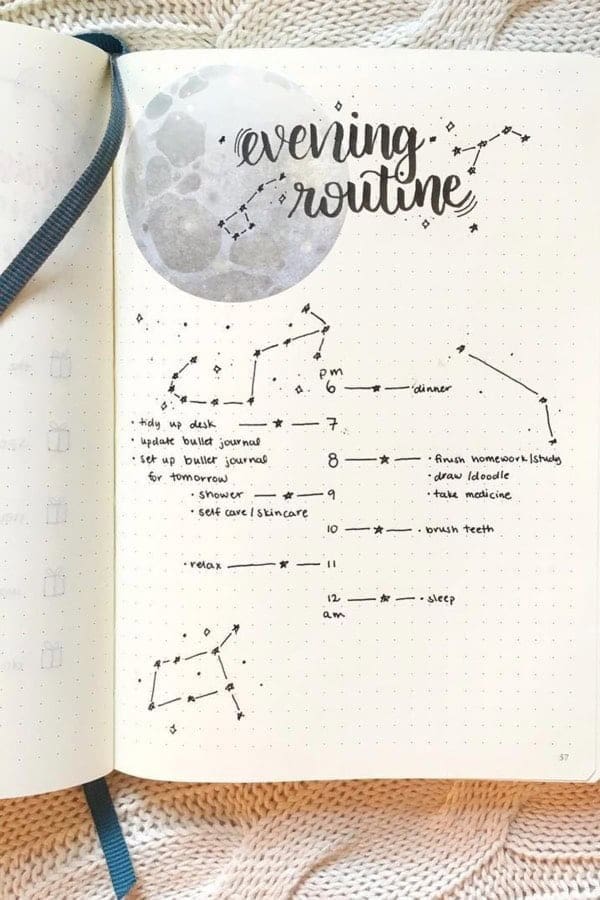 evening
routine
pm
6 dinner
• tidy up desk 7
• update bullet journal
• set up bullet journal
for tomorrow
8 • finish homework/study
• draw/doodle
• take medicine
• shower 9
• self care/skincare
10 • brush teeth
• relax 11
12 • sleep
am
37